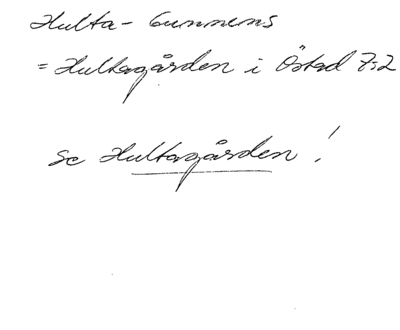 Hulta - Gunnens
= Hultagården i Östad 7:2
Se Hultagården !